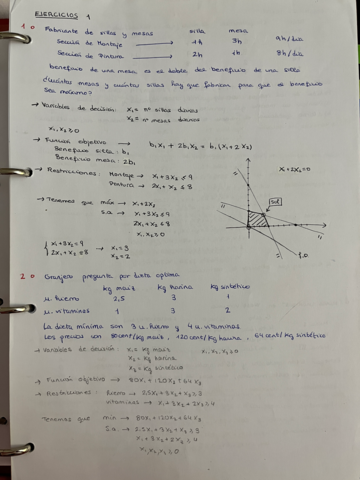 EJERCICIOS 1
1. Fabricante de sillas y mesas silla mesa
Sección de Montaje → 1h 3h 9h/día
Sección de Pintura → 2h 1h 8h/día
beneficio de una mesa es el doble del beneficio de una silla
¿cuántas mesas y cuántas sillas hay que fabricar para que el beneficio
sea máximo?
→ Variables de decisión: x₁ = nº sillas diarias
x₂ = nº mesas diarias
x₁, x₂ ≥ 0
→ Función objetivo → b₁x₁ + 2b₁x₂ = b₁(x₁+2x₂)
Beneficio silla: b₁
Beneficio mesa: 2b₁
x₁+2x₂=0
→ Restricciones: Montaje → x₁+3x₂ ≤ 9
Pintura → 2x₁+x₂ ≤ 8
sol
→ Tenemos que máx → x₁+2x₂
s.a → x₁+3x₂ ≤ 9
2x₁+x₂ ≤ 8
x₁, x₂ ≥ 0
{ x₁+3x₂ = 9
2x₁+x₂ = 8 → x₁ = 3
x₂ = 2
2. Granjero pregunta por dieta óptima
kg maíz kg harina kg sintético
u. hierro 2,5 3 1
u. vitaminas 1 3 2
La dieta mínima son 3 u. hierro y 4 u. vitaminas
Los precios son 80cent/kg maíz, 120cent/kg harina, 64cent/kg sintético
→ Variables de decisión: x₁ = kg maíz x₁, x₂, x₃ ≥ 0
x₂ = kg harina
x₃ = kg sintético
→ Función objetivo → 80x₁ + 120x₂ + 64x₃
→ Restricciones: Hierro → 2.5x₁+3x₂+x₃ ≥ 3
vitaminas → x₁+3x₂+2x₃ ≥ 4
Tenemos que mín → 80x₁+120x₂+64x₃
s.a → 2.5x₁+3x₂+x₃ ≥ 3
x₁+3x₂+2x₃ ≥ 4
x₁, x₂, x₃ ≥ 0